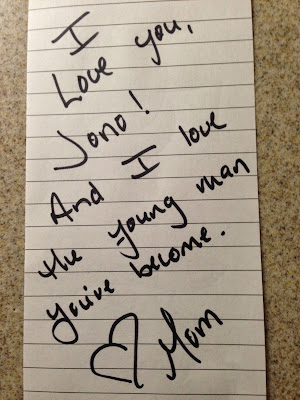 I
Love you,
Jono!
And I love
the young man
you've become.
♡ Mom